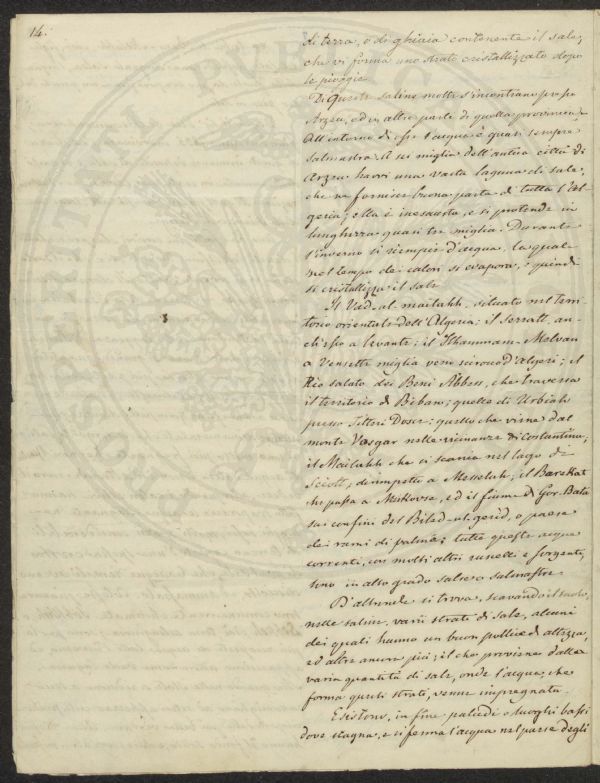 14.
di terra, o di ghiaia contenente il sale,
che vi forma uno strato cristallizzato dopo
le pioggie.
Di queste saline molte s'incontrano presso
Arzeu, ed in altre parte di quella provincia.
All'intorno di esse l'acqua è quasi sempre
salmastra. A sei miglia dell'antica città di
Arzeu havvi una vasta laguna di sale,
che ne fornisce buona parte di tutta l'Al-
geria; ella è inesausta, e si protende in
lunghezza quasi tre miglia. Durante
l'inverno si riempie d'acqua, la quale
nel tempo dei calori si evapora, e quindi
si cristallizza il sale.
Il Vad-al-mailahh, situato nel terri-
torio orientale dell'Algeria; il Serratt, an-
ch'esso a levante; il Hhammam-Melvan
a Vensette miglia verso scirocco d'Algeri; il
Rio salato dei Beni Abbess, che traversa
il territorio di Biban; quello di Urbiah
presso Titteri Doser; quello che viene dal
monte Vasgar nelle vicinanze di Costantina;
il Mailahh che si scarica nel lago di
dirimpetto a Messeluh; il Barekat
che passa a Mikovse, ed il fiume di Gor-Bata
sui confini del Bilad-ul-gerid, o paese
dei rami di palma; tutte queste acque
correnti, con molti altri ruscelli e sorgenti,
sono in alto grado salse o salmastre.
D'altronde si trova, scavando il suolo,
nelle saline, varii strati di sale, alcuni
dei quali hanno un buon pollice di altezza,
ed altri ancora più; il che proviene dalla
varia quantità di sale, onde l'acqua, che
forma questi strati, venne impregnata.
Esistono, in fine paludi o luoghi bassi
dove stagna, e si ferma l'acqua nel paese degli